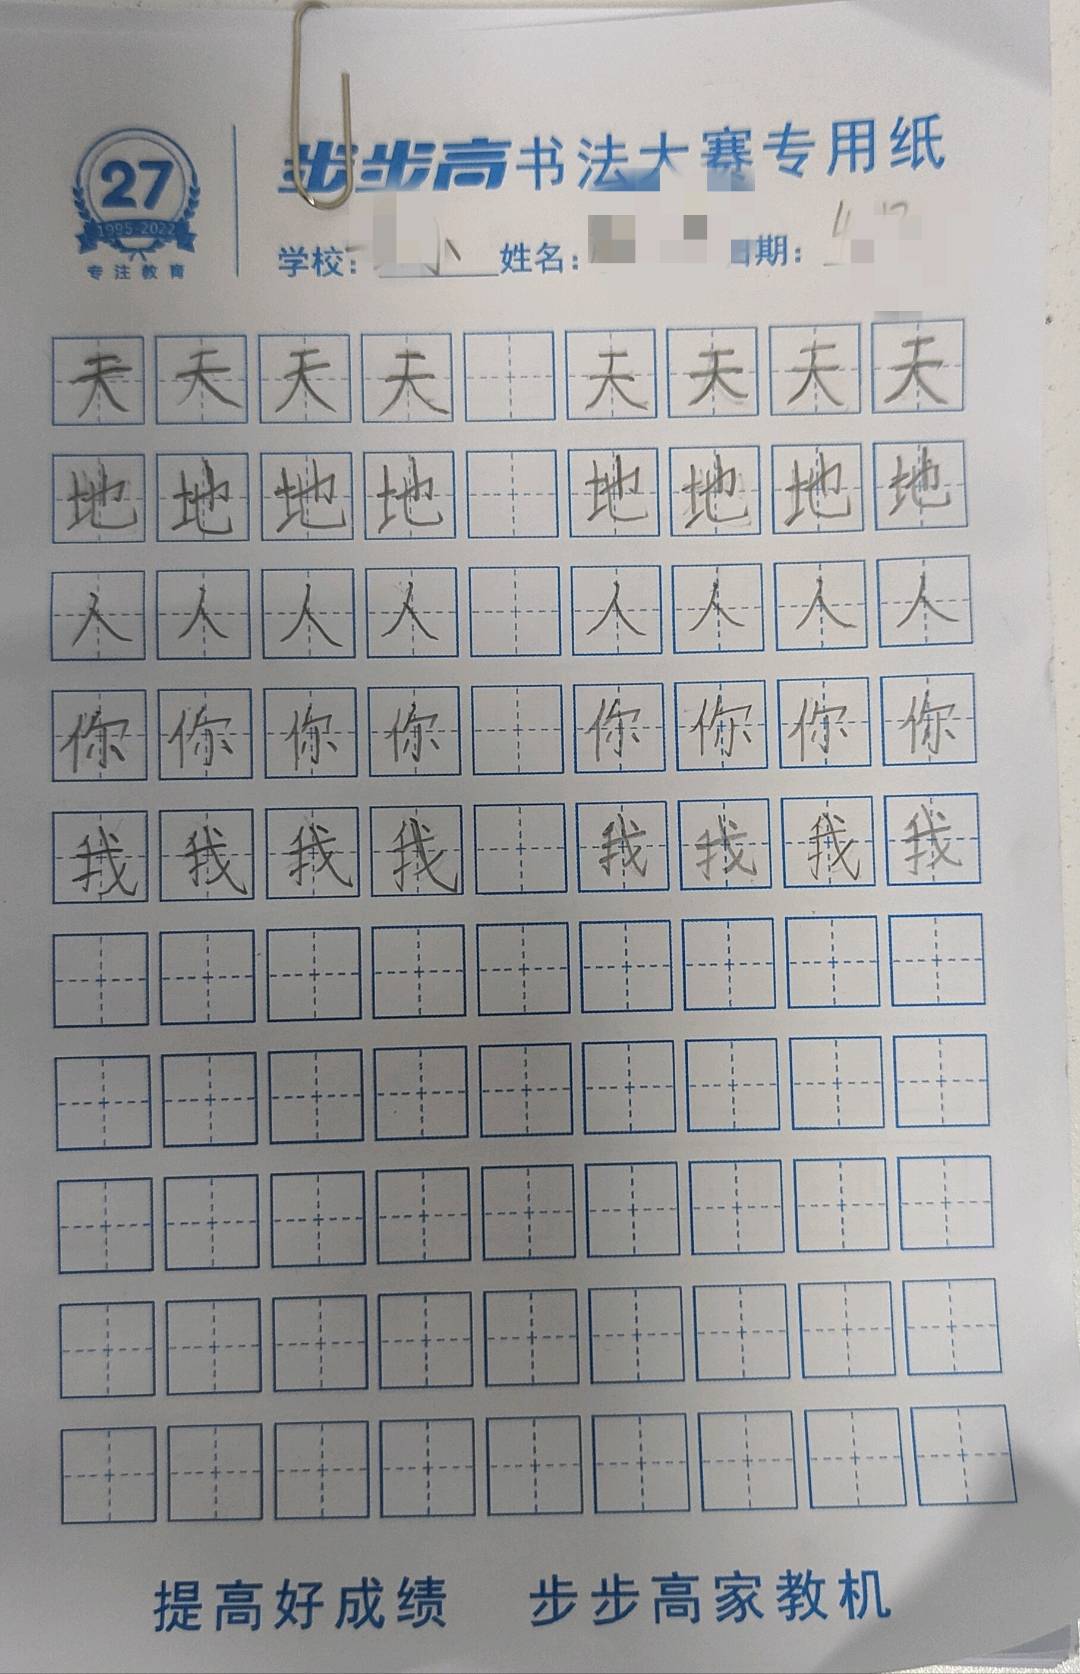 27
1995-2022
专注教育
步步高书法大赛专用纸
学校： 姓名： 期：
天天天天 天天天天
地地地地 地地地地
人人人人 人人人人
你你你你 你你你你
我我我我 我我我我
提高好成绩 步步高家教机